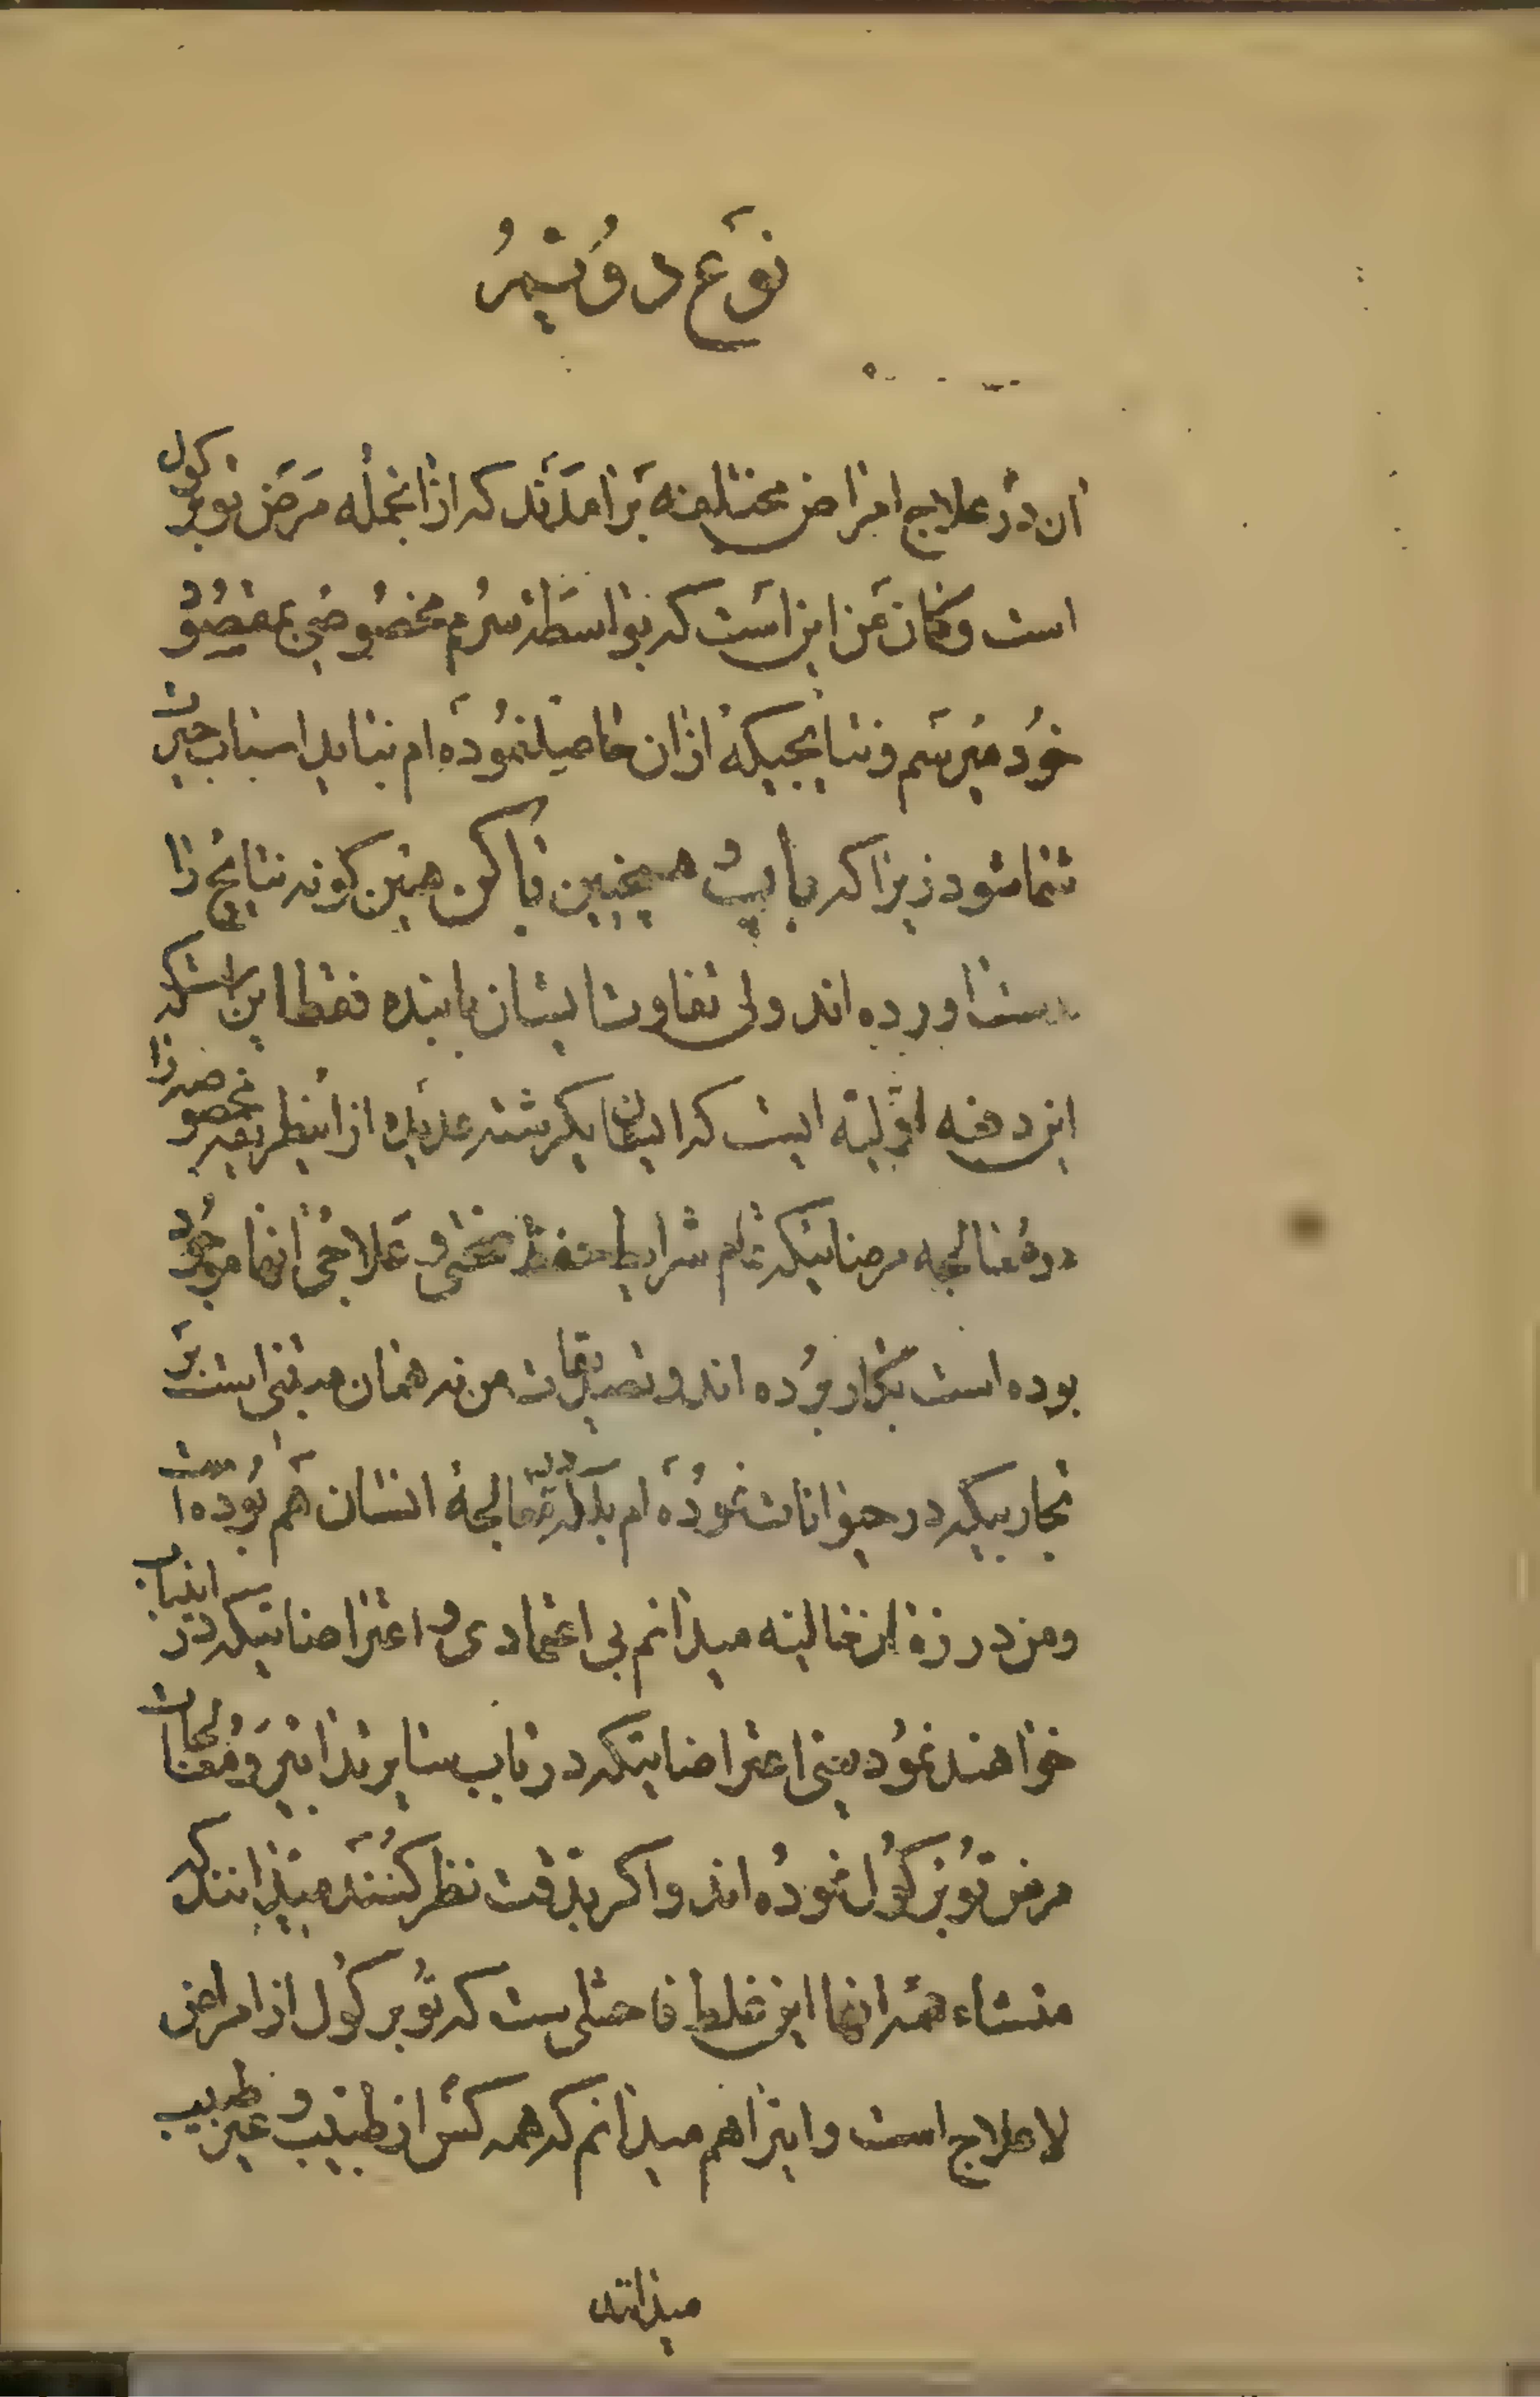 نوع دویمر
ان در علاج امراض مختلفه برامدند که از انجمله مرض توبرکول
است و کمان من این است که بواسطه سرم مخصوصی بمقصود
خود میرسم و نتایجیکه از ان حاصل نموده ام نباید اسباب حیرت
شما شود زیرا که باب و همچنین فاکن همین کونه نتایج را
بدست اورده اند ولی تفاوت ایشان با بنده فقط این است که
این دفعه اولیه ایست که ایشان یکرشته عدیده از اینطریقه مخصوصه را
در معالجه مرضائیکه تمام شرایط حفظ صحتی و علاجی انها موجود
بوده است بکار برده اند و تصدیقات من نه همان مبنی است بر
تجاربیکه در حیوانات نموده ام بلکه در معالجه انسان هم بوده است
و من در زمان حالیه میدانم بی اعتمادی و اعتراضاتیکه در اینباب
خواهند نمود یعنی اعتراضاتیکه در باب سایر تدابیر و معالجات
مرض توبرکول نموده اند و اکر بدقت نظر کنند میدانند که
منشاء همه انها این غلط فاحشی است که توبرکول از امراض
لاعلاج است و اینرا هم میدانم که همه کس از طبیب و غیر طبیب
میدانند